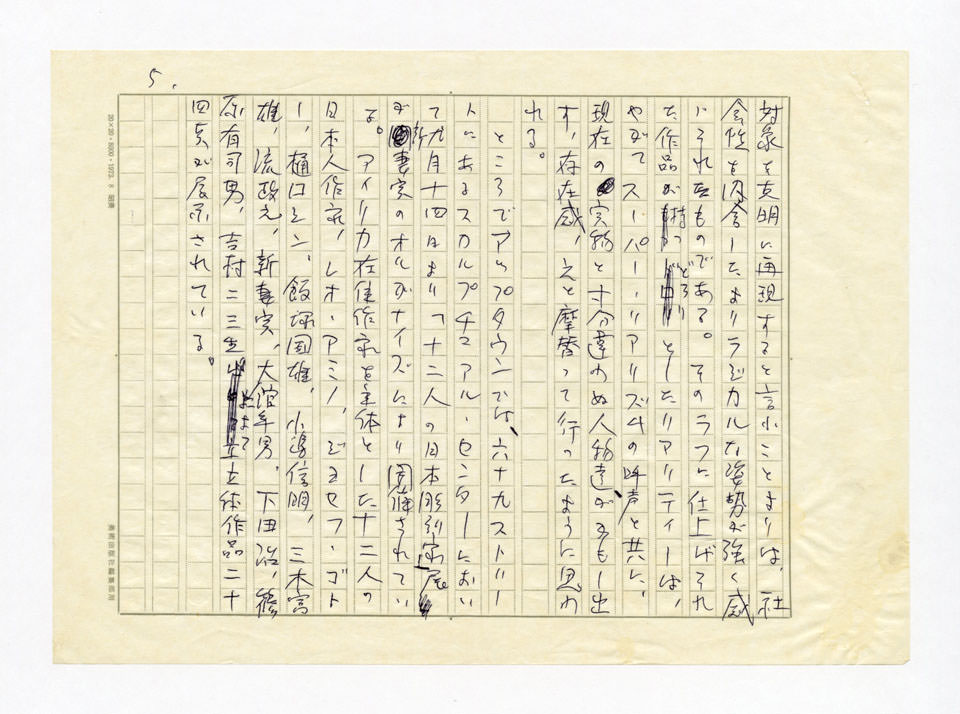 5.
対象を克明に再現すると言小ことよりは、社
会性を内含したよりラジカルな姿勢が強く感
じそれたものである。そのラフに仕上げそれ
た作品が持つどろりとしたリアリティーは、
やがてスーパー・リアリズムの呼声と共に、
現在の実物と寸分違わぬ人物達がかもし出
す、存在感、えと摩替って行ったように思わ
れる。
ところでアップタウンでは、六十九ストリー
トにあるスカルプチュアル・センターにおい
て九月十四日より「十二人の日本彫刻家展
が新妻実のオルガナイズにより開催されてい
る。アメリカ在住作家を主体とした十二人の
日本人作家、レオ・アミノ、ジョセフ・ゴト
ー、樋口シン、飯塚国雄、小邊信明、三木富
雄、流政之、新妻実、大舘年男、下田治、篠
原有司男、吉村二三生による立体作品二十
四点が展示されている。
20×20・8200・1973. 8